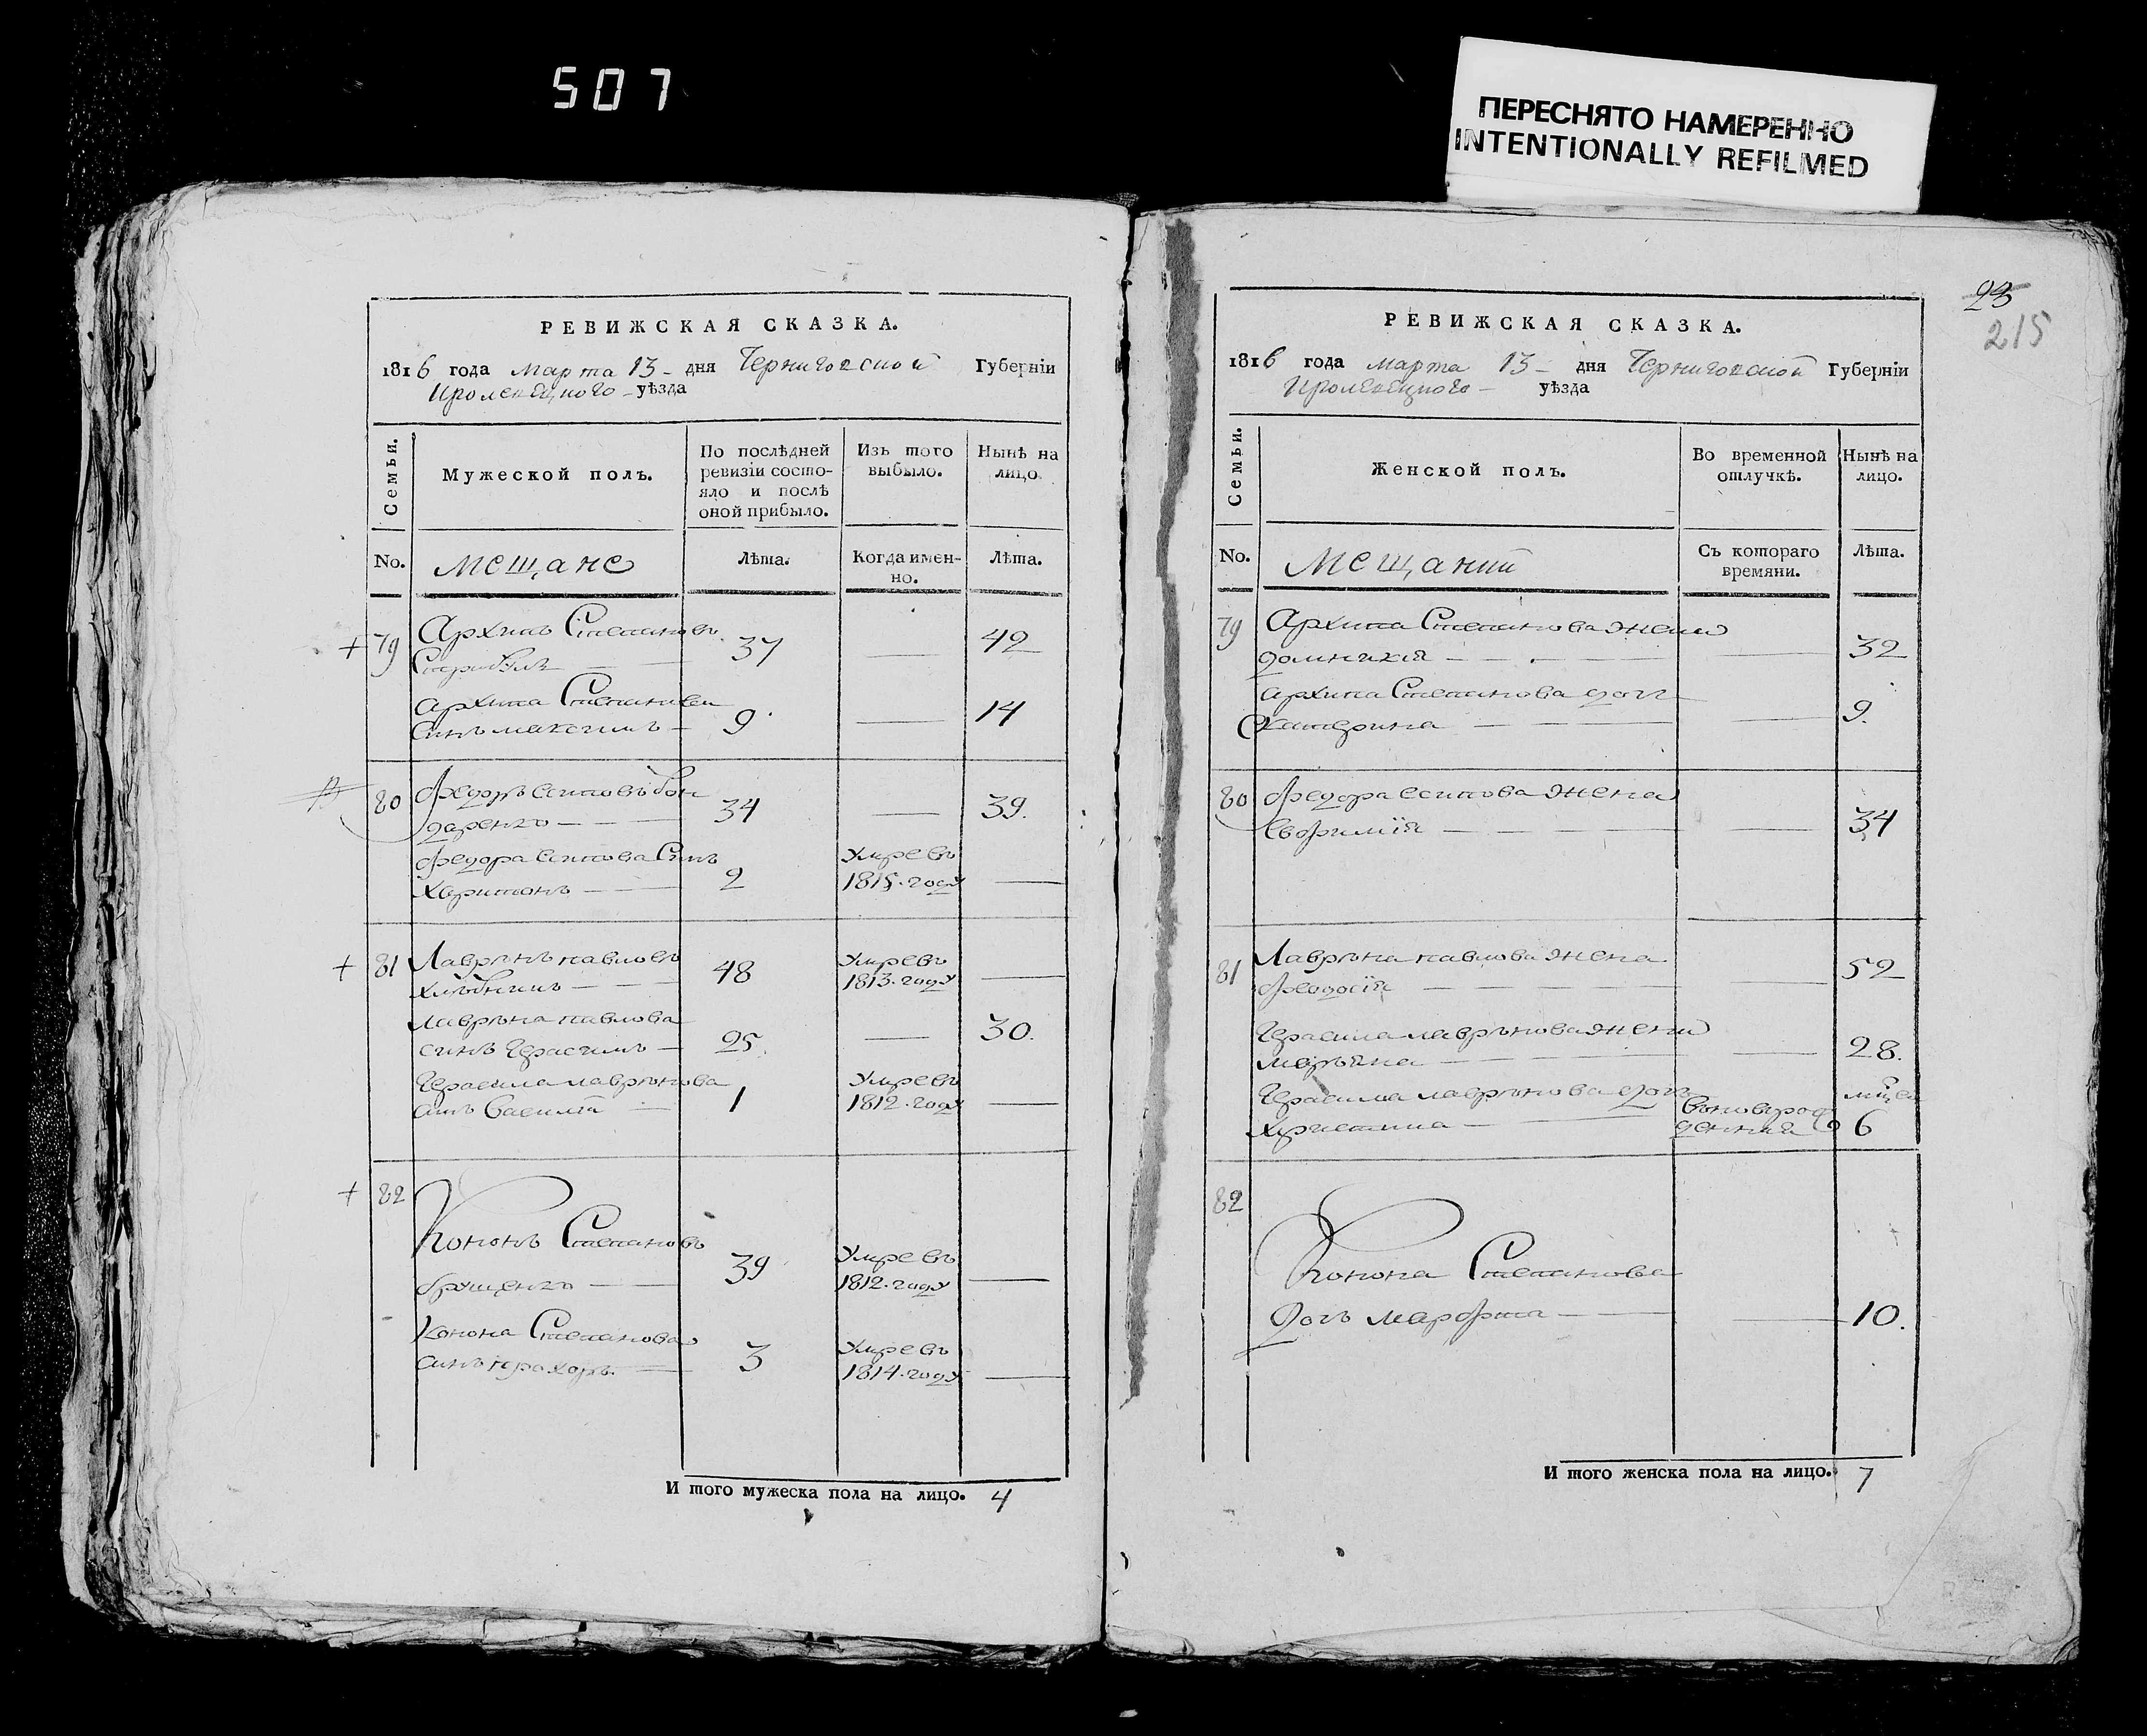 507
ПЕРЕСНЯТО НАМЕРЕННО
INTENTIONALLY REFILMED
РЕВИЖСКАЯ СКАЗКА.
1816 года марта 13 - дня Черниговской Губерніи
Кролевецкого - уѣзда
Семьи.
Мужеской полъ.
По послѣдней
ревизіи состо-
яло и послѣ
оной прибыло.
Изъ того
выбыло.
Нынѣ на
лицо.
No.
мещане
Лѣта.
Когда имен-
но.
Лѣта.
79
Архипъ Степановъ
37
42
Архипа Степанова
синъ максимъ
9
14
80
Федоръ есиповъ бон
даренко
34
39.
Федора есипова Синъ
Харитонъ
2
Умревъ
1815. году
81
Лаврѣнъ павловъ
хлѣбникъ
48
Умревъ
1813. году
лаврѣна павлова
синъ Герасимъ
25.
30.
Герасима лаврѣнова
синъ Василій
1
Умревъ
1812. году
82
Кононъ Степановъ
39
Умревъ
1812. году
Конона Степанова
синъ прахоръ
3
Умревъ
1814. году
И того мужеска пола на лицо. 4
23
215
РЕВИЖСКАЯ СКАЗКА.
1816 года марта 13 - дня Черниговской Губерніи
Кролевецкого - уѣзда
Семьи.
Женской полъ.
Во временной
отлучкѣ.
Нынѣ на
лицо.
No.
Мещанки
Съ котораго
времяни.
Лѣта.
79
Архипа Степанова жена
домникія
32
архипа Степанова дочь
Екатерина
9.
80
Федора есипова жена
Евфимія
34
81
Лаврѣна павлова жена
Феодосія
52
Герасима лаврѣнова жена
марѣяна
28.
Герасима лаврѣнова дочь
Христина
6
82
Конона Степанова
Дочъ марфта
10.
И того женска пола на лицо. 7